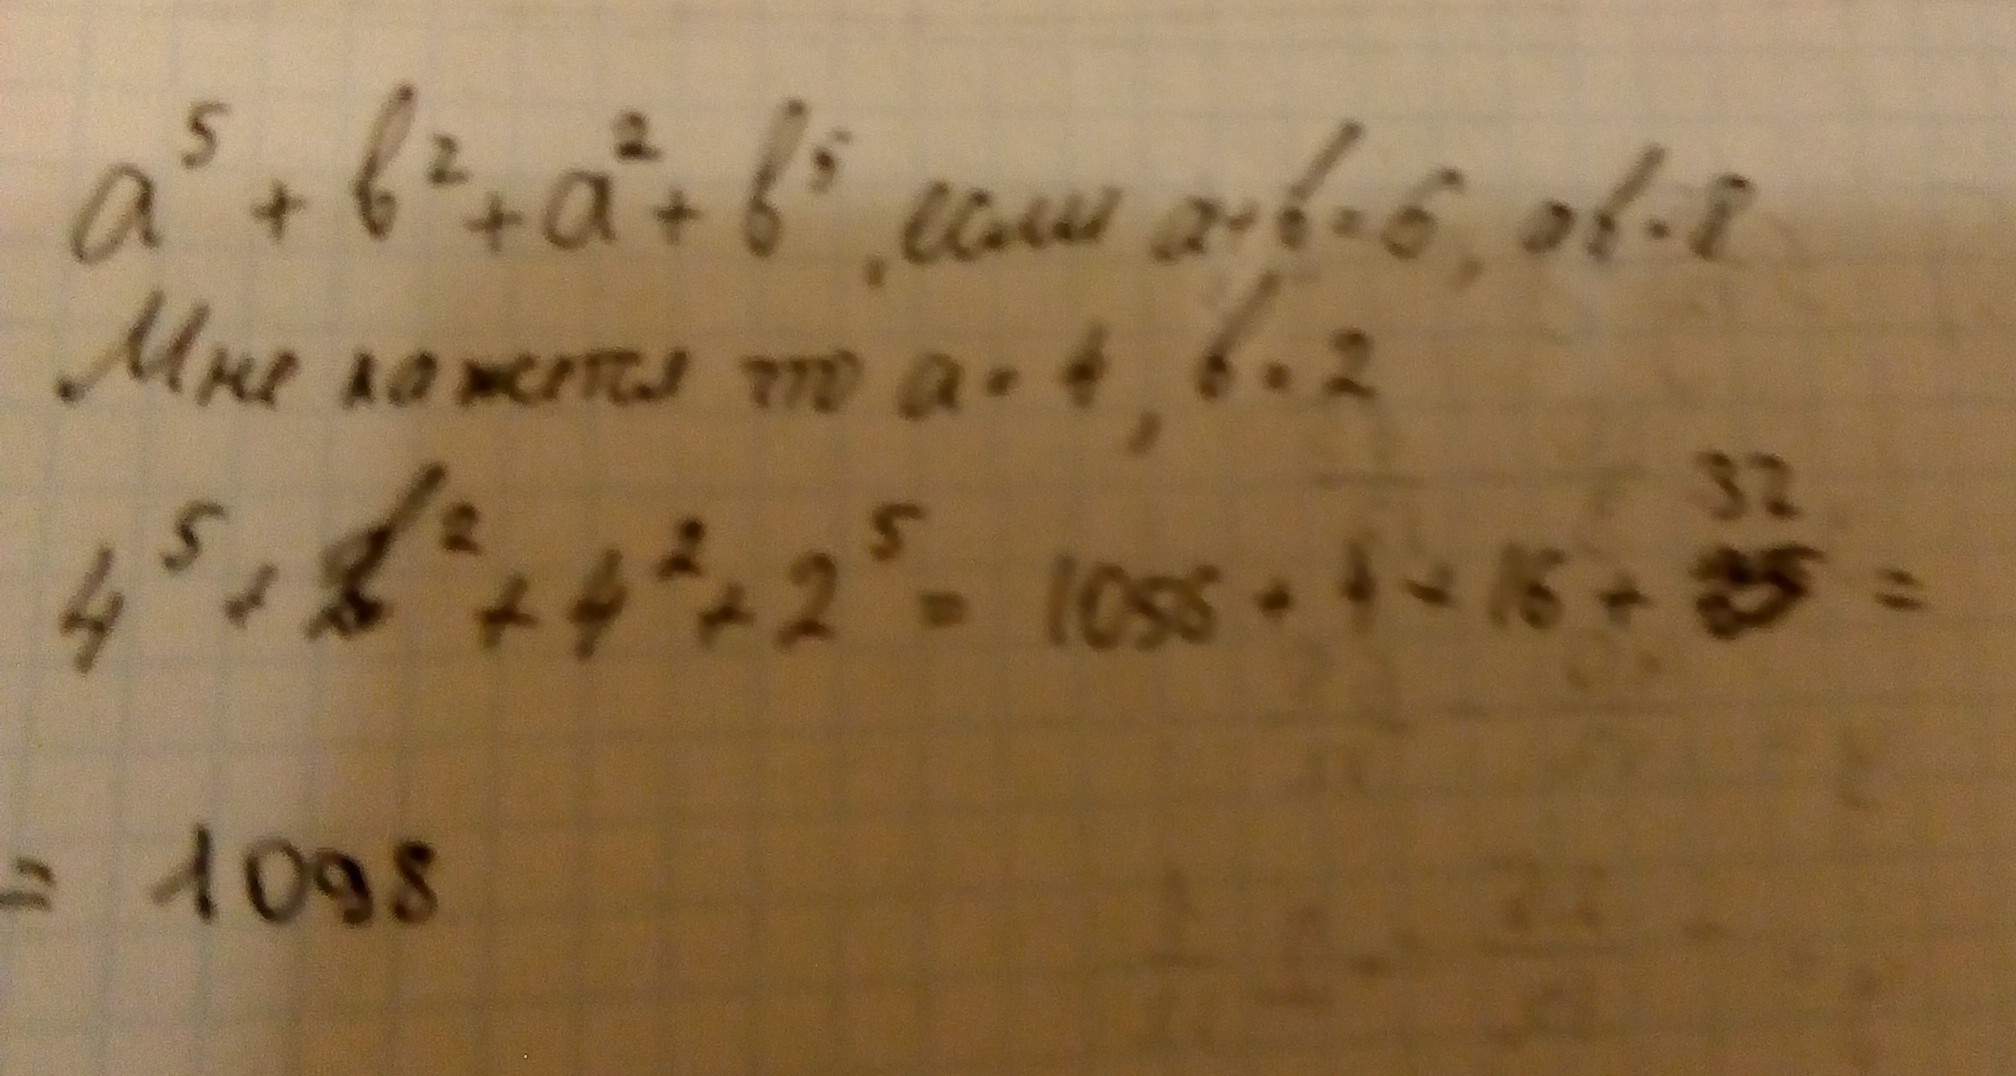 a⁵ + b² + a² + b⁵, если a+b=6, ab=8
Мне кажется что a=4, b=2
4⁵ + 2² + 4² + 2⁵ = 1056 + 4 + 16 + 32 =
= 1098